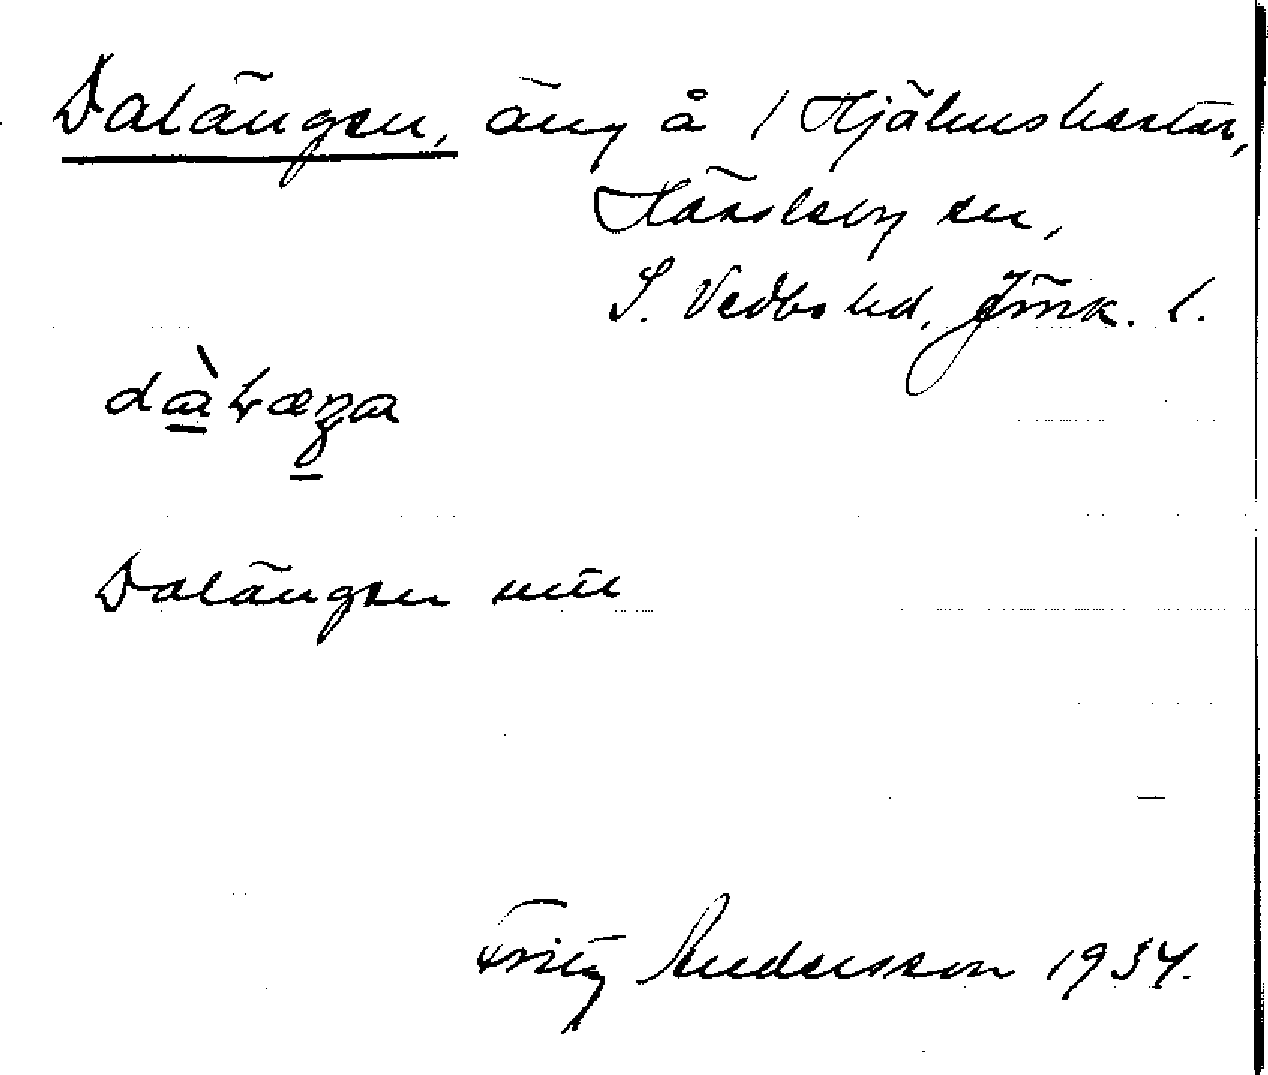 Dalängen, äng å 1 Hjälmshestar,
Hässleby sn,
S. Vedbo hd, Jönk. l.
Dalängen
Fritz Andersson 1934.